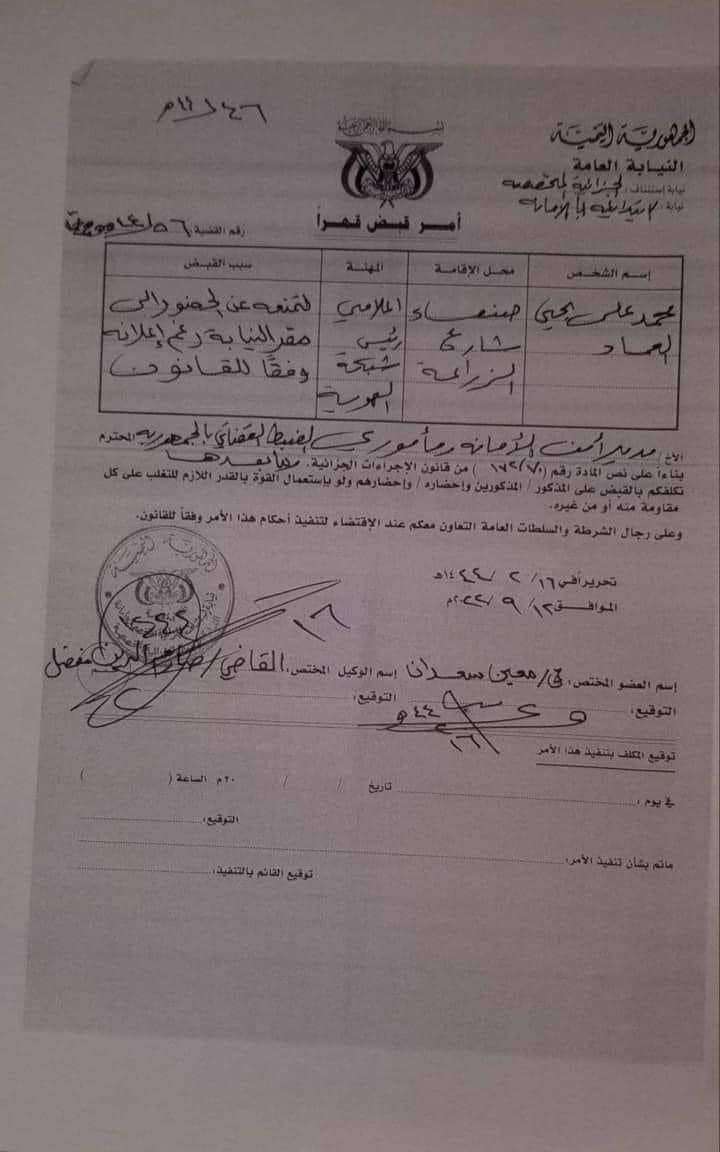 الجمهورية اليمنية
النيابة العامة
نيابة إستئناف: الجزائية المتخصصة
نيابة: الابتدائية بالأمانة
أمر قبض قهراً
رقم القضية
إسم الشخص محل الإقامة المهنة سبب القبض
محمد علي يحيى العماد
صنعاء شارع الزراعة
اعلامي رئيس شبكة الهوية
لتمنعه عن الحضور الى مقر النيابة رغم إعلانه وفقاً للقانون
الأخ/ مدير أمن الأمانة ومأموري الضبط القضائي بالجمهورية المحترم
بناءاً على نص المادة رقم ( ) من قانون الإجراءات الجزائية. وما بعدها
نكلفكم بالقبض على المذكور / المذكورين وإحضاره / وإحضارهم ولو بإستعمال القوة بالقدر اللازم للتغلب على كل
مقاومة منه أو من غيره.
وعلى رجال الشرطة والسلطات العامة التعاون معكم عند الإقتضاء لتنفيذ أحكام هذا الأمر وفقاً للقانون.
تحريراً في ١٦/ ٢ /١٤٤٤هـ
الموافق ١٢/ ٩ /٢٠٢٢م
إسم العضو المختص: ق/ معين سعدان إسم الوكيل المختص: القاضي/ مفضل
التوقيع: التوقيع:
توقيع المكلف بتنفيذ هذا الأمر
في يوم : تاريخ / / ٢٠م الساعة ( )
التوقيع:
ماتم بشأن تنفيذ الأمر:
توقيع القائم بالتنفيذ: